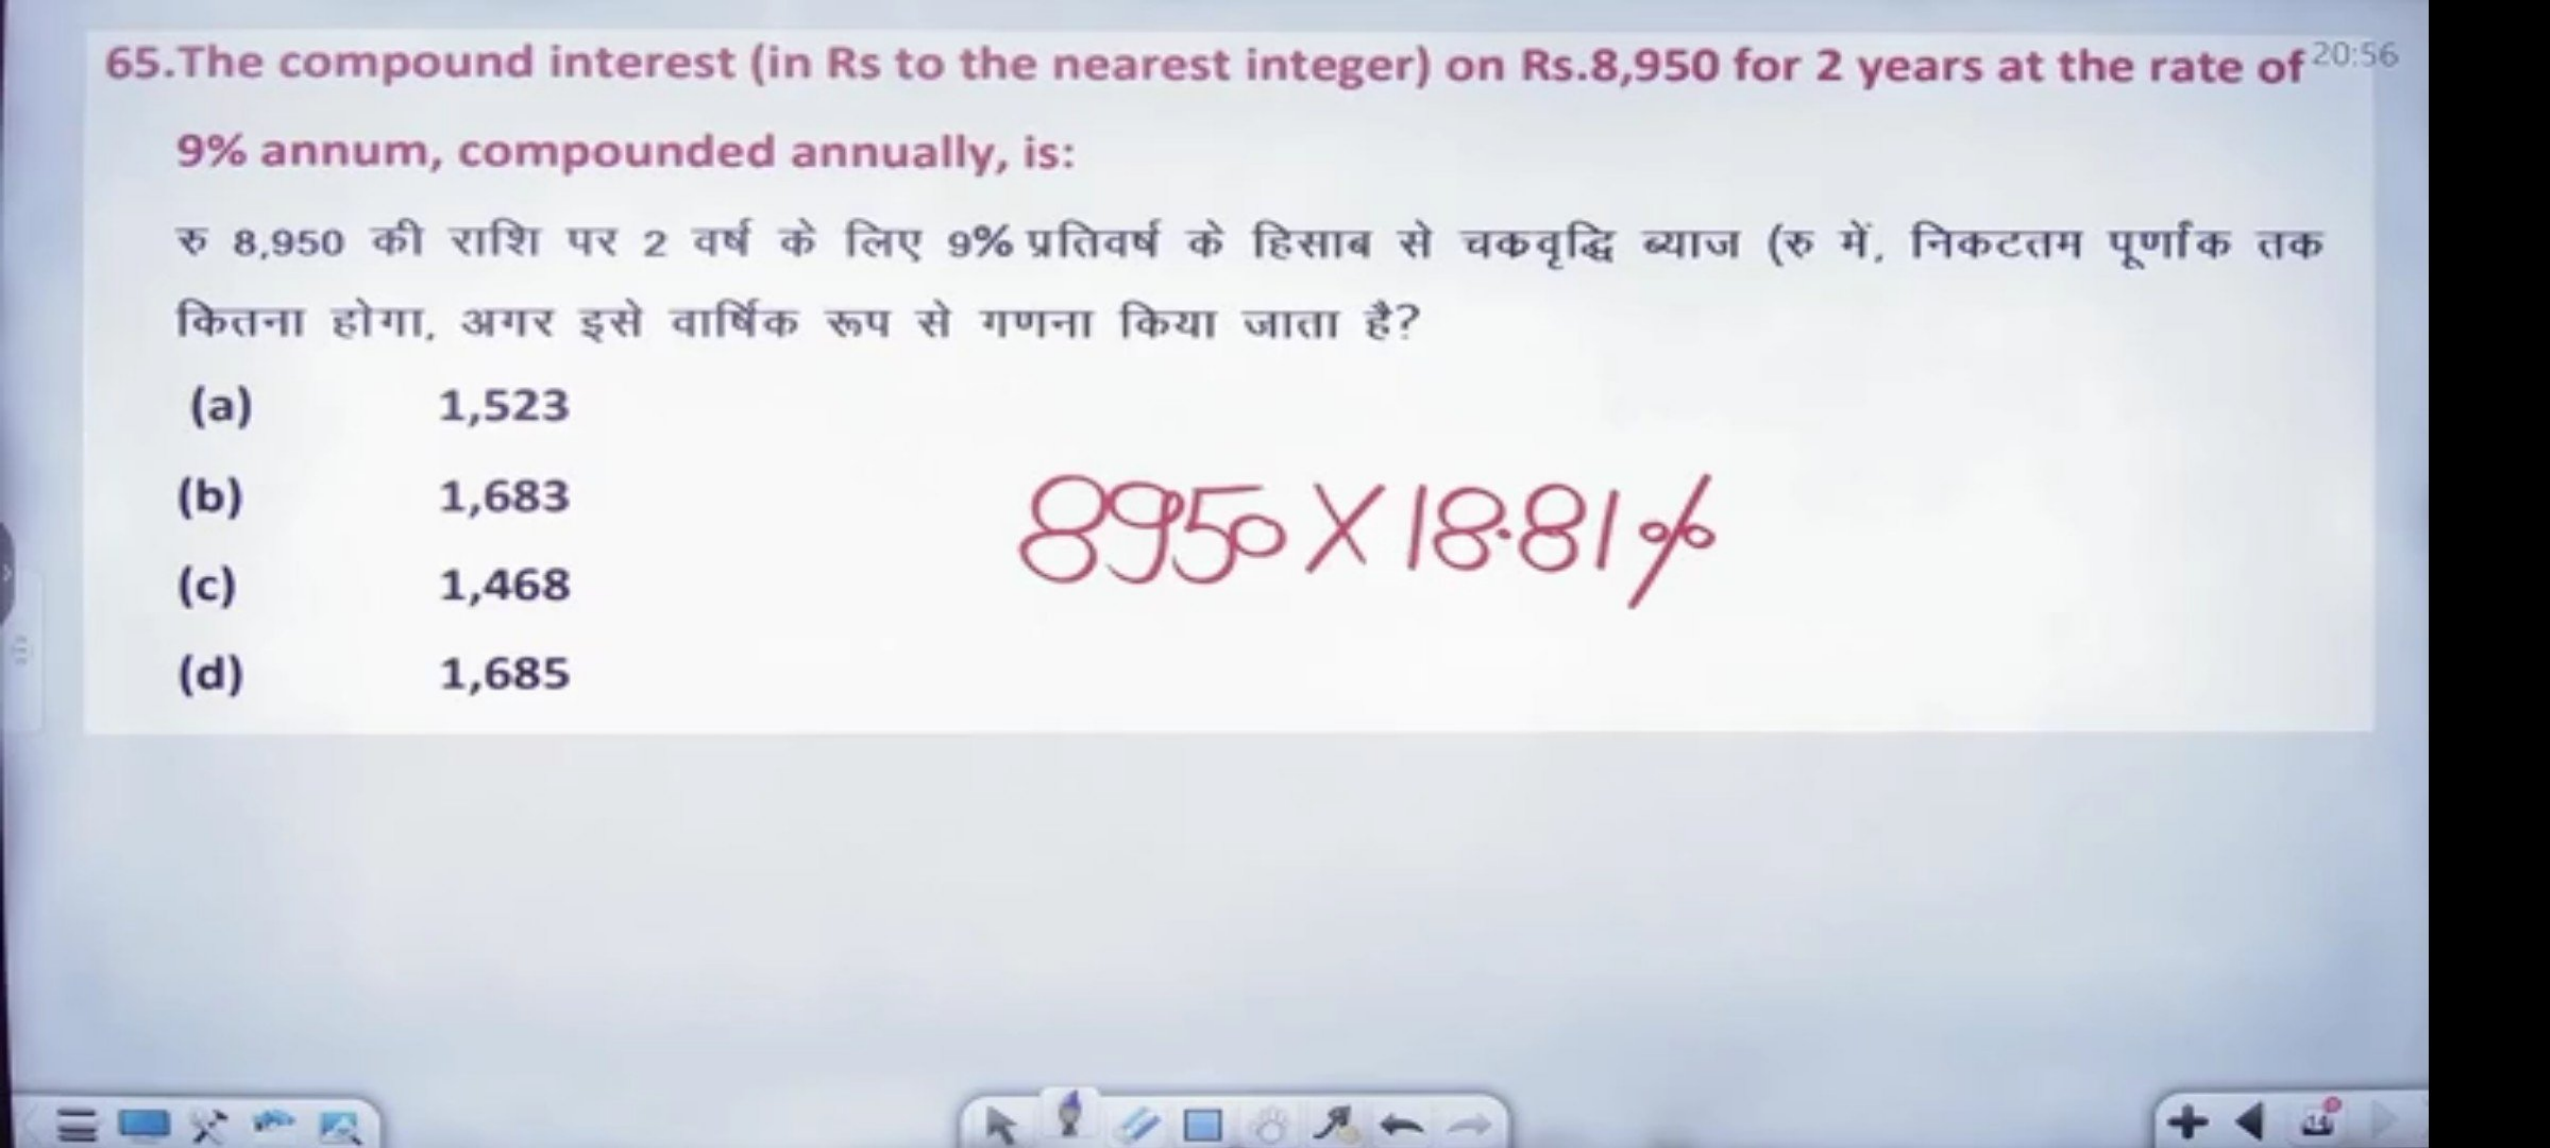 65.The compound interest (in Rs to the nearest integer) on Rs.8,950 for 2 years at the rate of 20:56
9% annum, compounded annually, is:
रु 8,950 की राशि पर 2 वर्ष के लिए 9% प्रतिवर्ष के हिसाब से चकवृद्धि ब्याज (रु में, निकटतम पूर्णांक तक
कितना होगा, अगर इसे वार्षिक रूप से गणना किया जाता है?
(a) 1,523
(b) 1,683
8950 X 18.81%
(c) 1,468
(d) 1,685